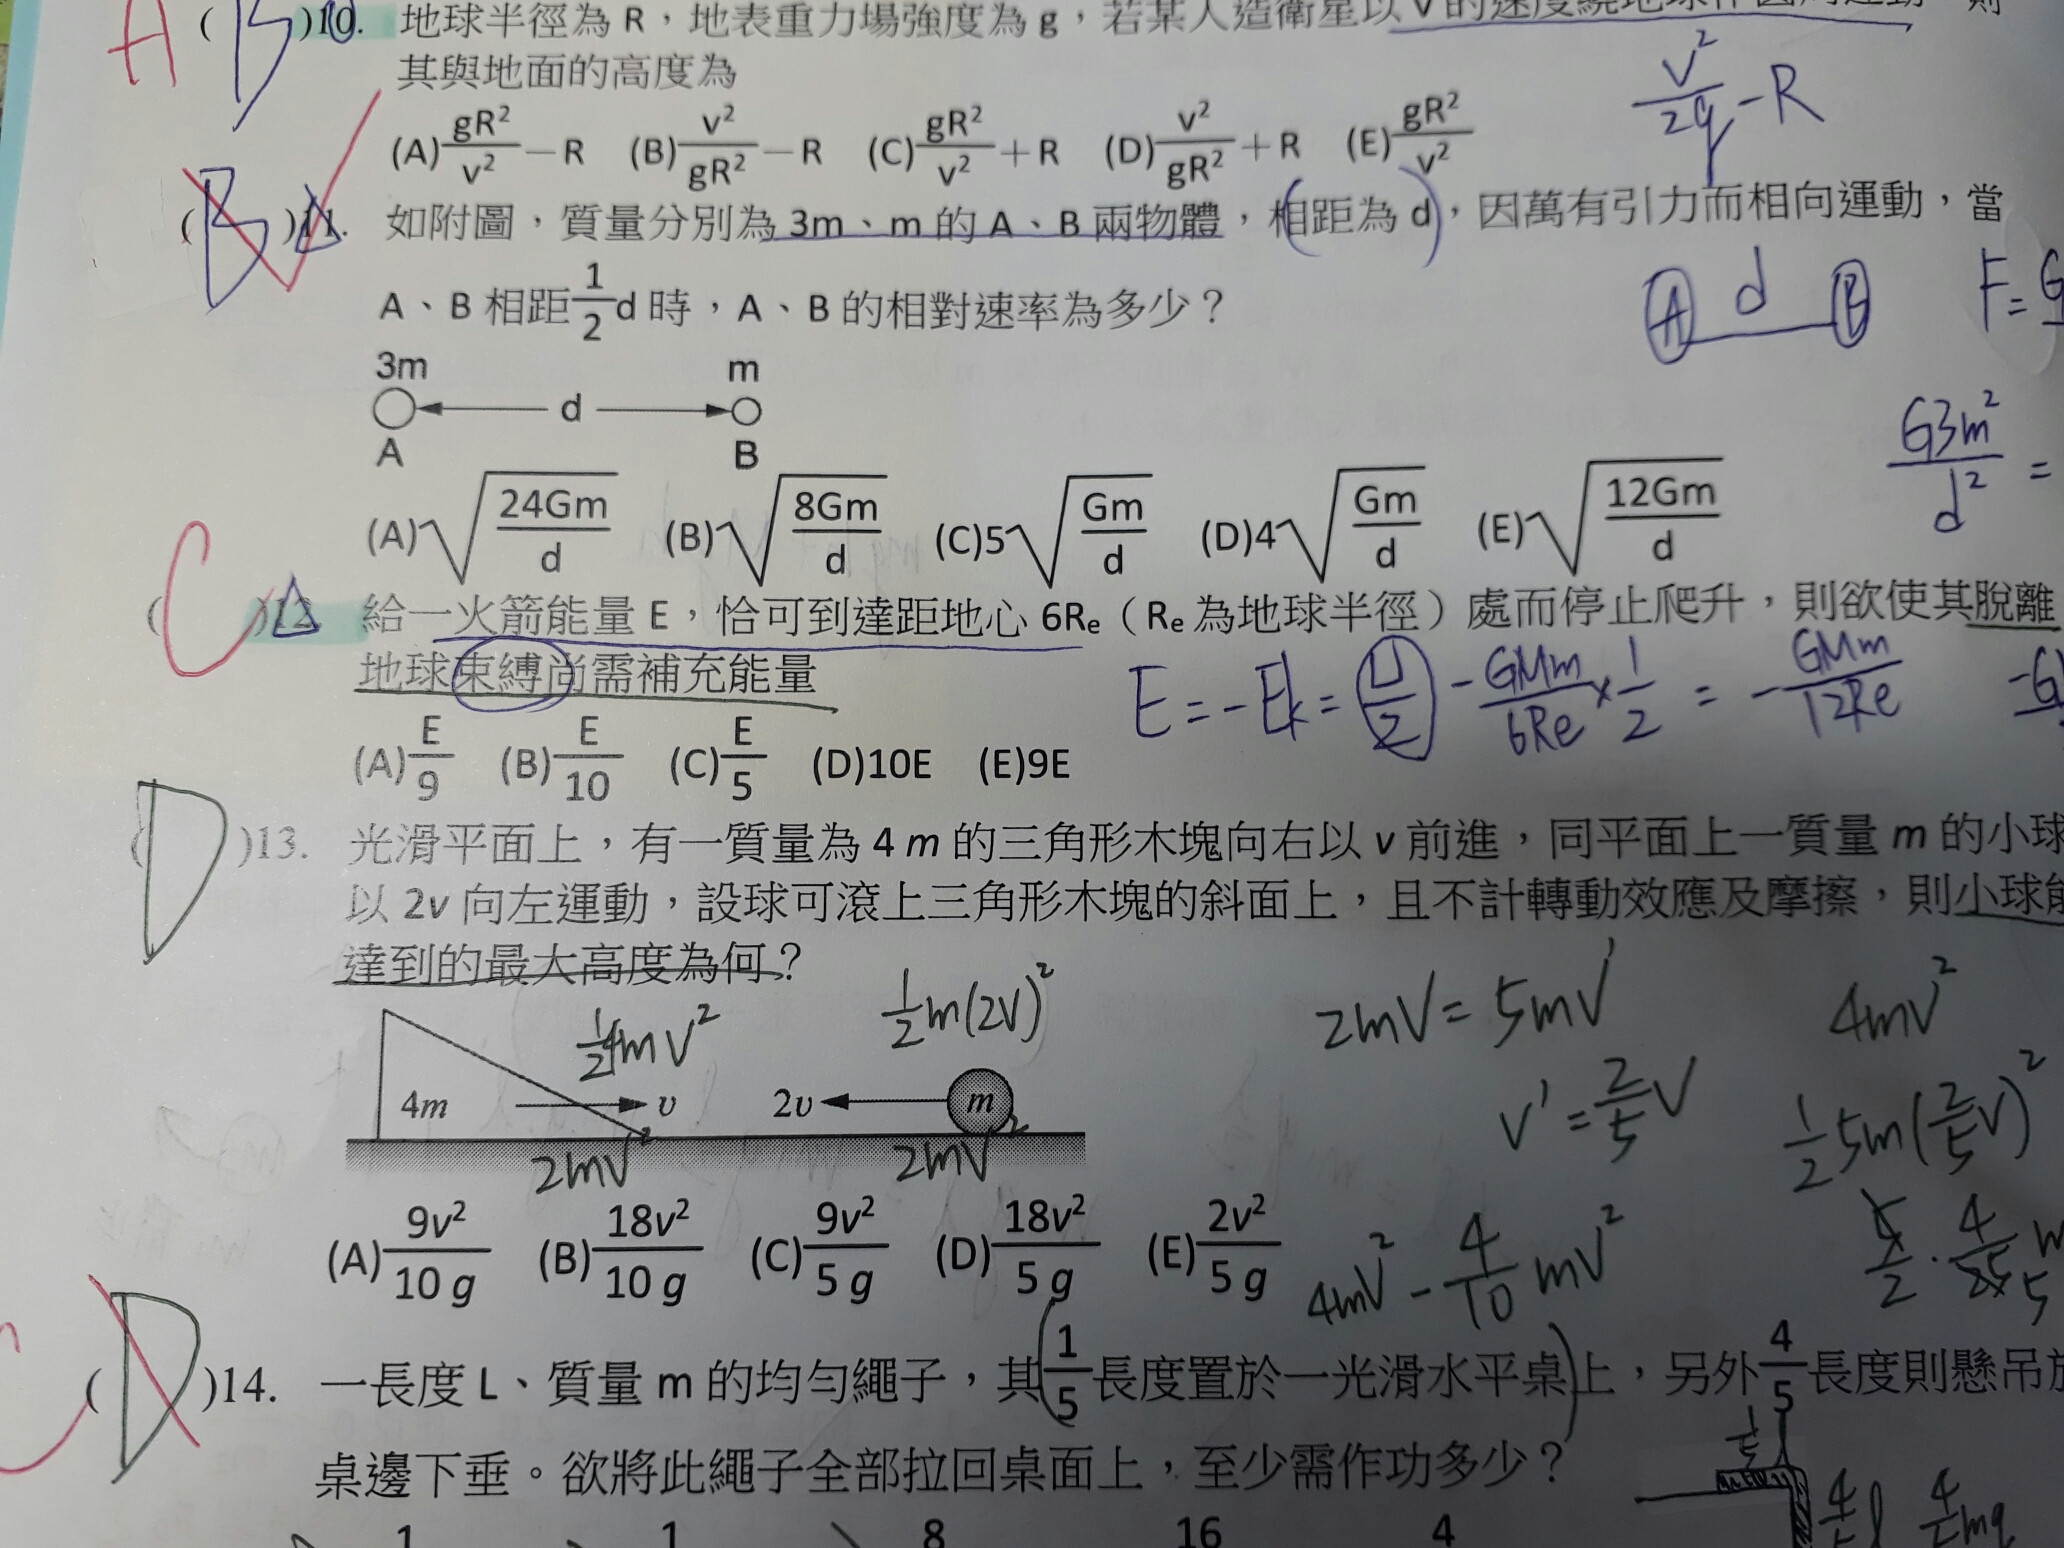 A ( B )10. 地球半徑為 R，地表重力場強度為 g，若某人造衛星以 v 的速度繞地球作圓周運動，則
其與地面的高度為
v²/2g - R
(A) gR²/v² － R (B) v²/gR² － R (C) gR²/v² ＋ R (D) v²/gR² ＋ R (E) gR²/v²
( B )11. 如附圖，質量分別為 3m、m 的 A、B 兩物體，相距為 d，因萬有引力而相向運動，當
A、B 相距 1/2 d 時，A、B 的相對速率為多少？
A d B F = G
3m m
d
A B
G3m²/d² =
(A) √(24Gm/d) (B) √(8Gm/d) (C) 5√(Gm/d) (D) 4√(Gm/d) (E) √(12Gm/d)
( C )12. 給一火箭能量 E，恰可到達距地心 6Re（Re 為地球半徑）處而停止爬升，則欲使其脫離
地球束縛尚需補充能量
E = -Ek = U/2 - GMm/6Re × 1/2 = - GMm/12Re -G
(A) E/9 (B) E/10 (C) E/5 (D)10E (E)9E
( D )13. 光滑平面上，有一質量為 4 m 的三角形木塊向右以 v 前進，同平面上一質量 m 的小球
以 2v 向左運動，設球可滾上三角形木塊的斜面上，且不計轉動效應及摩擦，則小球能
達到的最大高度為何？
1/2 4mv² 1/2 m(2v)² 2mv = 5mv' 4mv²
4m υ 2υ m
v' = 2/5 v 1/2 5m(2/5 v)²
2mv² 2mv²
(A) 9v²/10 g (B) 18v²/10 g (C) 9v²/5 g (D) 18v²/5 g (E) 2v²/5 g
4mv² - 4/10 mv²
C ( D )14. 一長度 L、質量 m 的均勻繩子，其 1/5 長度置於一光滑水平桌上，另外 4/5 長度則懸吊於
桌邊下垂。欲將此繩子全部拉回桌面上，至少需作功多少？
1 1 8 16 4